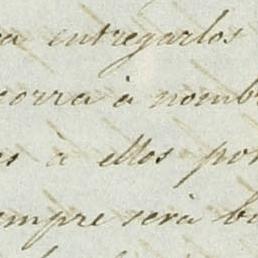 a entregarlos
corra à nomb
s à ellos por
empre serà b